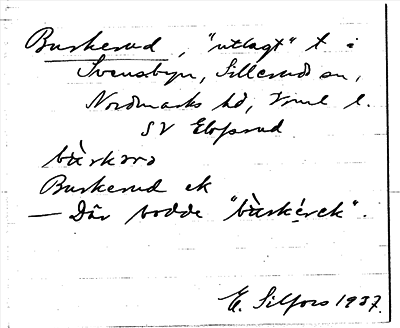 Buskerud, "utlagt" t i
Svensbyn, Sillerud sn,
Nordmarks hd, Vrml l.
SV Elofsrud
Buskerud ek
— Där bodde
E. Silfors 1937.